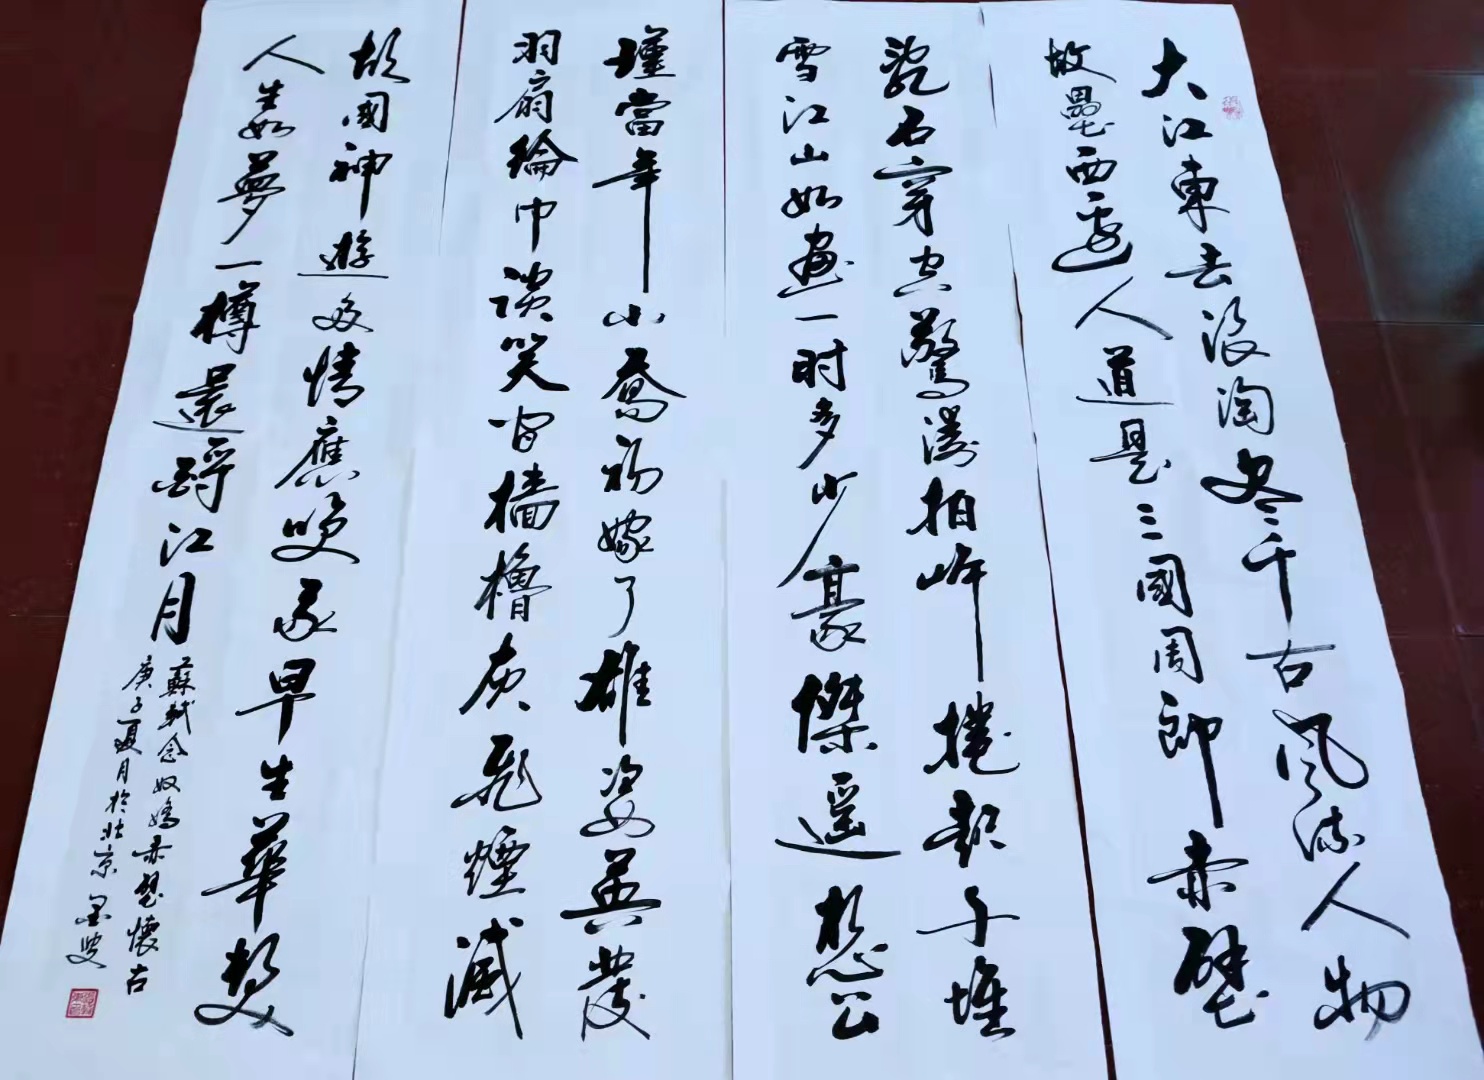 大江東去浪淘尽千古風流人物
故壘西邊人道是三國周郎赤壁
亂石穿空驚濤拍岸捲起千堆
雪江山如畫一时多少豪傑遥想公
瑾當年小喬初嫁了雄姿英發
羽扇綸巾談笑间檣櫓灰飛煙滅
故國神遊多情應咲我早生華髮
人生如夢一樽還酹江月
蘇軾念奴嬌赤壁懷古
庚子夏月於北京 墨叟